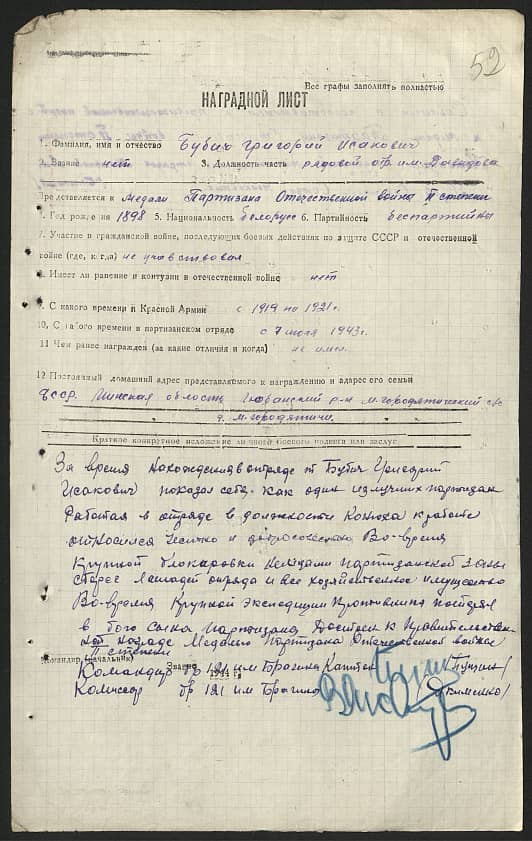 52
Все графы заполнять полностью
НАГРАДНОЙ ЛИСТ
1. Фамилия, имя и отчество Бубич Григорий Исакович
2. Звание нет 3. Должность часть рядовой отр. им. Давыдова
Представляется к медали Партизана Отечественной войны II степени
4. Год рождения 1898 5. Национальность белорус 6. Партийность беспартийный
7. Участие в гражданской войне, последующих боевых действиях по защите СССР и отечественной
войне (где, когда) не участвовал
8. Имеет ли ранение и контузии в отечественной войне нет
9. С какого времени в Красной Армии с 1919 по 1921 г.
10. С какого времени в партизанском отряде с 7 июля 1943 г.
11 Чем ранее награжден (за какие отличия и когда) не имел.
12 Постоянный домашний адрес представляемого к награждению и адрес его семьи
БССР. Минская область р-н м. городятический с/с
д. м. городятичи.
Краткое конкретное изложение личного боевого подвига или заслуг
За время нахождения в отряде т Бубич Григорий
Исакович показал себя как один из лучших партизан
Работая в отряде в должности Конюха к работе
относился честно и добросовестно Во-время
крупной блокировки немцами партизанской зоны
лошадей отряда и все хозяйственное имущество
Во-время крупной экспедиции противника потерял
в бою сына партизана Достоин к правительствен-
ной награде Медалью Партизана Отечественной войны
II степени
Командир (начальник) Звание
1944 г.
Командир бр 121 им Брагина Капитан
Комиссар бр 121 им Брагина